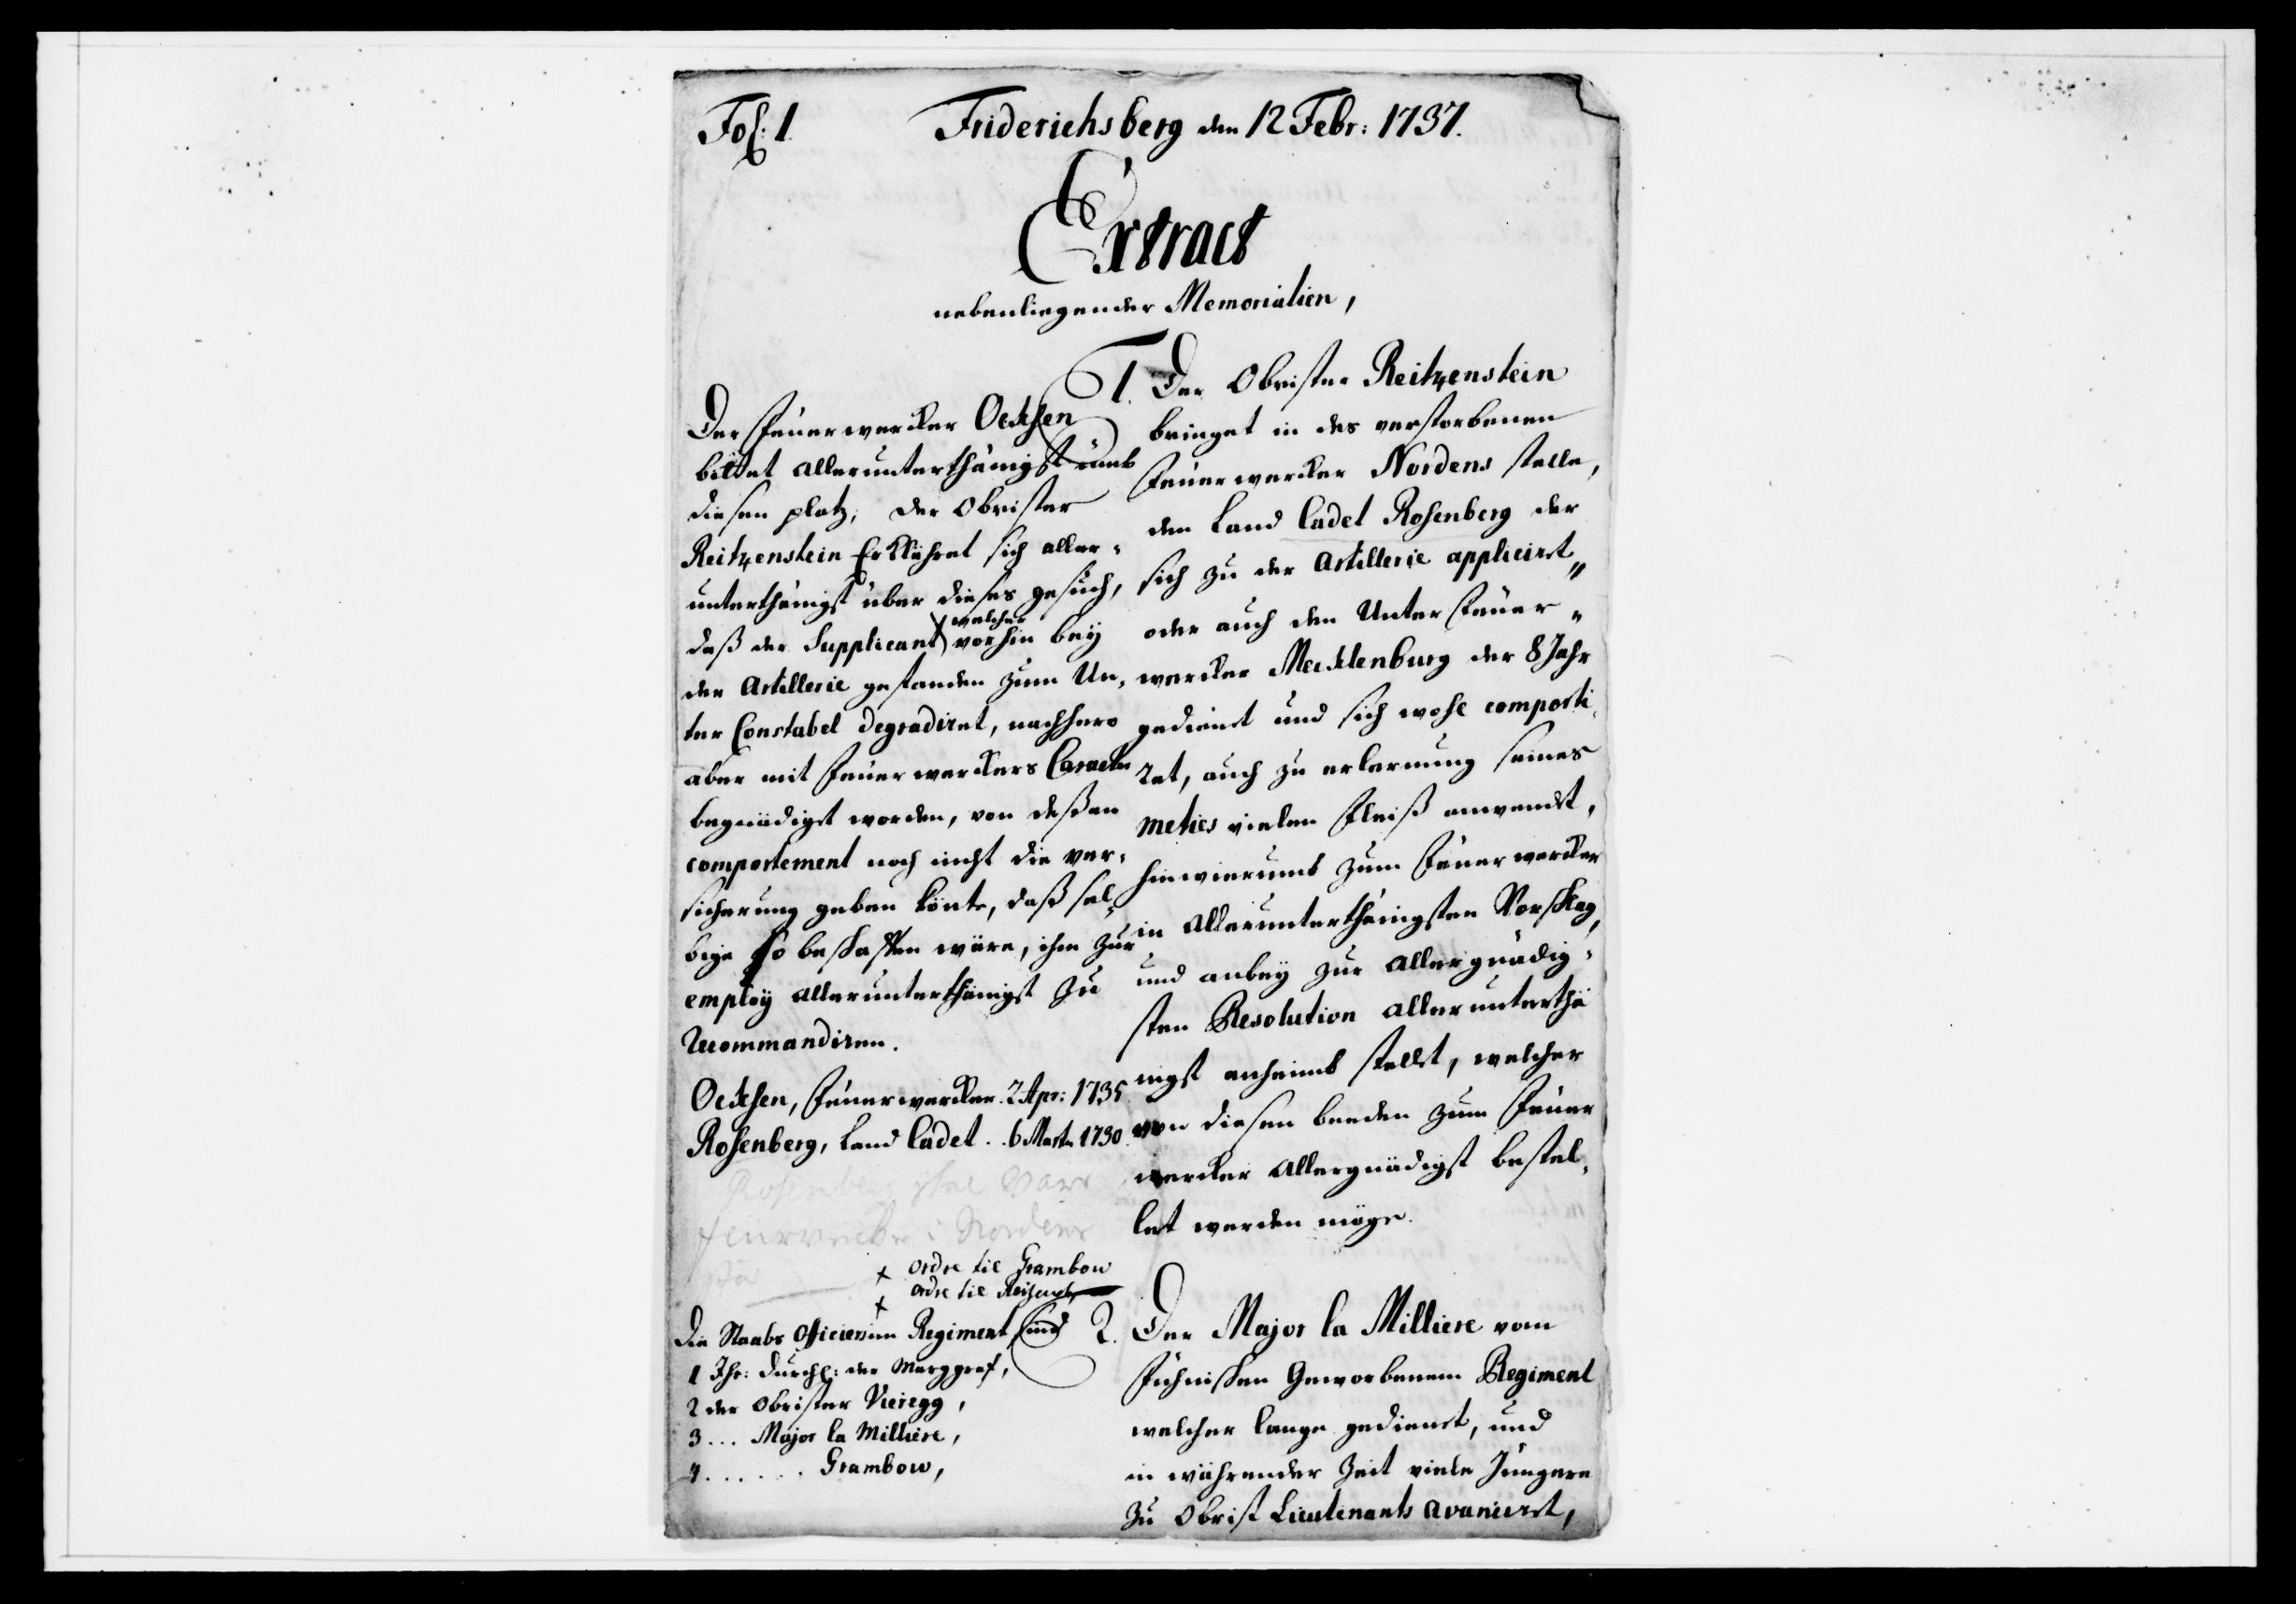 Fol: 1.
Friderichsberg den 12 Febr: 1737.
Extract
nebenliegender Memorialien,
1. Der Obrister Reitzenstein
bringet in des verstorbenen
Feuerwercker Nordens stelle,
den Land Cadet Rosenberg der
sich zu der Artillerie appliciret,
oder auch den Unter Feuer-
wercker Mecklenburg der 8 Jahr
gedienet und sich wohl comporti-
ret, auch zu erlernung seines
meties vielen Fleiß anwendet,
hinwiederumb zum Feuerwercker
in allerunterthänigsten Vorschlag,
und anbey zur allergnädig-
sten Resolution allerunterthä
nigst anheimb stellet, welcher
von diesen beeden zum Feuer
wercker allergnädigst bestel-
let werden möge.
Der Feuerwercker Oecksen
bittet allerunterthänigst umb
diesen platz, der Obrister
Reitzenstein Erklähret sich aller-
unterthänigst über dieses gesuch,
daß der Supplicant welcher vorhin bey
der Artillerie gestanden zum Un-
ter Constabel degradiret, nachhero
aber mit Feuerwerckers Caracter
begnädiget worden, von deßen
comportement noch nicht die ver-
sicherung geben könte, daß sel-
bige so beschaffen wäre, ihn zur
employ allerunterthänigst zu
recommandiren.
Oecksen, Feuerwercker. 2 Apr: 1735.
Rosenberg, Land Cadet. . 6 Martz 1730.
Rosenberg skal være
feurverker i Nordens
+ ordre til Grambow
+ ordre til
Die Staabs Officiers im Regiment sind
1 Ihr: Durchl: der Marggraf,
2 der Obrister Vieregg,
3 . . . Major la Milliere,
4 . . . . . . Grambow,
2. Der Major la Milliere vom
Fühnischen Geworbenem Regiment
welcher lange gedienet, und
in währender Zeit viele Jüngere
zu Obrist Lieutenants avanciret,